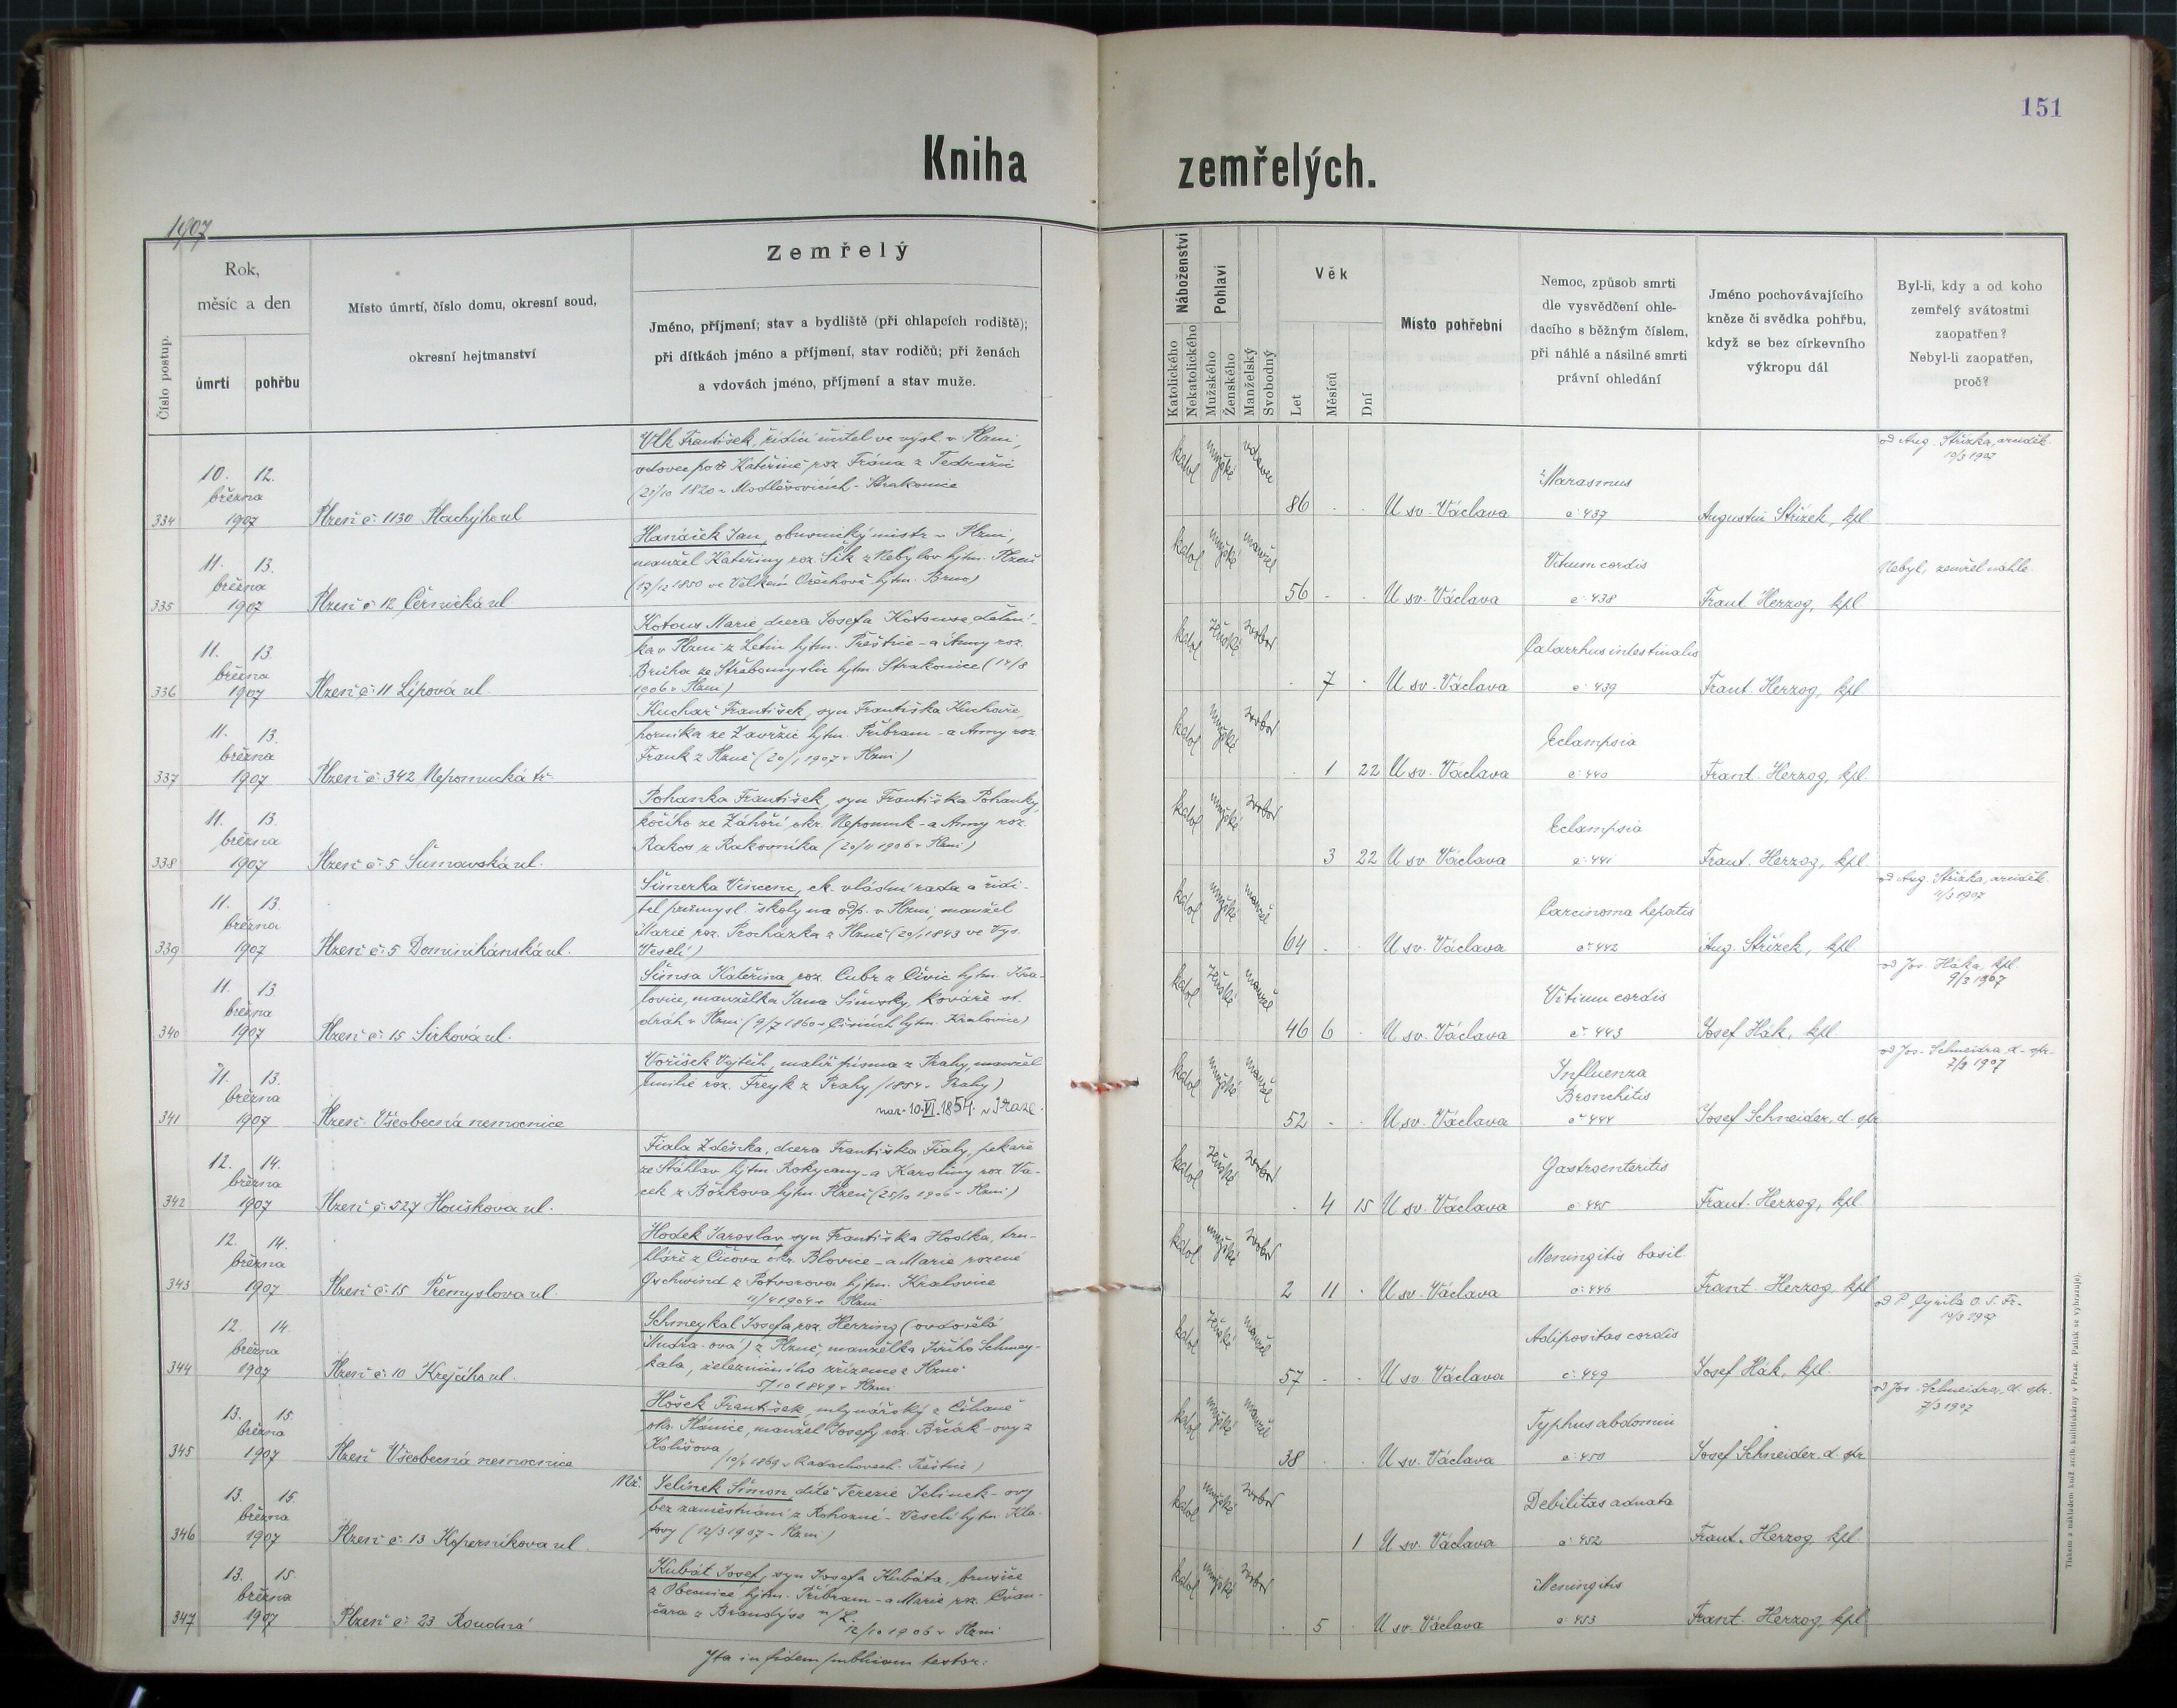 151
Kniha zemřelých.
1907
Číslo postup.
Rok,
měsíc a den
úmrtí
pohřbu
Místo úmrtí, číslo domu, okresní soud,
okresní hejtmanství
Zemřelý
Jméno, příjmení; stav a bydliště (při chlapcích rodiště);
při dítkách jméno a příjmení, stav rodičů; při ženách
a vdovách jméno, příjmení a stav muže.
Náboženství
Katolického
Nekatolického
Pohlaví
Mužského
Ženského
Manželský
Svobodný
Věk
Let
Měsíců
Dní
Místo pohřební
Nemoc, způsob smrti
dle vysvědčení ohle-
dacího s běžným číslem,
při náhlé a násilné smrti
právní ohledání
Jméno pochovávajícího
kněze či svědka pohřbu,
když se bez církevního
výkropu dál
Byl-li, kdy a od koho
zemřelý svátostmi
zaopatřen?
Nebyl-li zaopatřen,
proč?
334
10. 12.
března
1907
Plzeň č. 1130 Plachýho ul
Vlk František, řídící učitel ve výsl. v Plzni,
vdovec po † Kateřině roz. Frána z Tedražic
(21/10 1820 v Modlěšovicích - Strakonice
katol mužské vdovec
86 . .
U sv. Václava
Marasmus
č. 437
Augustin Střízek, kpl
od Aug. Střízka, arciděk.
10/3 1907
335
11. 13.
března
1907
Plzeň č. 12 Černická ul
Hanáček Jan, obuvnický mistr v Plzni,
manžel Kateřiny roz. Šik z Nebylov hjtm. Plzeň
(1850 ve Velkém Ořechově hjtm. Brno)
katol mužské manžel
56 . .
U sv. Václava
Vitium cordis
č. 438
Frant. Herzog, kpl
Nebyl, zemřel náhle.
336
11. 13.
března
1907
Plzeň č. 11 Lípová ul.
Kotous Marie, dcera Josefa Kotousa, dělní-
ka v Plzni z Letin hjtm. Přeštice - a Anny roz.
Brůha ze Střebomyslic hjtm. Strakonice (14/8
1906 v Plzni)
katol ženské svobod
. 7 .
U sv. Václava
Catarrhus intestinalis
č. 439
Frant. Herzog, kpl
337
11. 13.
března
1907
Plzeň č. 342 Nepomucká tř.
Kuchař František, syn Františka Kuchaře,
horníka ze Zavržic hjtm. Příbram - a Anny roz.
Frank z Plzně (20/1 1907 v Plzni)
katol mužské svobod
. 1 22
U sv. Václava
Eclampsia
č. 440
Frant. Herzog, kpl
338
11. 13.
března
1907
Plzeň č. 5 Šumavská ul.
Pohanka František, syn Františka Pohanky,
kočího ze Záhoří okr. Nepomuk - a Anny roz.
Rakos z Rakovníka (20/11 1906 v Plzni)
katol mužské svobod
3 22
U sv. Václava
Eclampsia
č. 441
Frant. Herzog, kpl
339
11. 13.
března
1907
Plzeň č. 5 Dominikánská ul.
Šimerka Vincenc, ck. vládní rada a řidi-
tel průmysl. školy na odp. v Plzni, manžel
Marie roz. Procházka z Plzně (20/1 1843 ve Vys.
Veselí)
katol mužské manžel
64 . .
U sv. Václava
Carcinoma hepatis
č. 442
Aug. Střízek, kpl
od Aug. Střízka, arciděk.
4/3 1907
340
11. 13.
března
1907
Plzeň č. 15 Sirková ul.
Šimsa Kateřina roz. Cubr z Čivic hjtm. Kra-
lovice, manželka Jana Šimsky, kováře st.
drah v Plzni (9/7 1860 v Čivicích hjtm. Kralovice)
katol ženské manžel
46 6 .
U sv. Václava
Vitium cordis
č. 443
Josef Hák, kpl.
od Jos. Háka, kpl.
9/3 1907
341
11. 13.
března
1907
Plzeň Všeobecná nemocnice
Voříšek Vojtěch, malíř písma z Prahy, manžel
Emilie roz. Freyk z Prahy (1854 v Praze)
nar. 10.VI.1854. v Praze.
katol mužské manžel
52 . .
U sv. Václava
Influenza
Bronchitis
č. 444
Josef Schneider, d. spr.
od Jos. Schneidra, d. spr.
7/3 1907
342
12. 14.
března
1907
Plzeň č. 527 Houškova ul.
Fiala Zdeňka, dcera Františka Fialy, pekaře
ze Šťáhlav hjtm. Rokycany - a Karoliny roz. Va-
cek z Božkova hjtm. Plzeň (25/10 1906 v Plzni)
katol ženské svobod
. 4 15
U sv. Václava
Gastroenteritis
č. 445
Frant. Herzog, kpl
343
12. 14.
března
1907
Plzeň č. 15 Přemyslova ul.
Hodek Jaroslav syn Františka Hodka, tru-
hláře z Čičova okr. Blovice - a Marie rozené
Gschwind z Potvorova hjtm. Kralovice
11/4 1904 v Plzni
katol mužské svobod
2 11 .
U sv. Václava
Meningitis basil.
č. 446
Frant. Herzog kpl
344
12. 14.
března
1907
Plzeň č. 10 Krejčího ul.
Schmeykal Josefa, roz. Herzing (ovdovělá
Mudra-ová) z Plzně, manželka Jiřího Schmey-
kala, železničního zřízence z Plzně
5/10 1849 v Plzni
katol ženské manžel
57 . .
U sv. Václava
Adipositas cordis
č. 449
Josef Hák, kpl.
od P. Cyrila O. S. Fr.
345
13. 15.
března
1907
Plzeň Všeobecná nemocnice
Hošek František, mlynářský z Číhaně
okr. Plánice, manžel Josefy roz. Brčák-ovy z
Kolišova
(1869 v Radochovech - Přeštice)
katol mužské manžel
38 . .
U sv. Václava
Typhus abdomin
č. 450
Josef Schneider d. spr
od Jos. Schneidra, d. spr.
7/3 1907
346
13. 15.
března
1907
Plzeň č. 13 Koperníkova ul.
Nž. Jelínek Šimon, dítě Terezie Jelínek-ovy
bez zaměstnání z Rohozné - Veselí hjtm. Kla-
tovy (12/3 1907 v Plzni)
katol mužské svobod
1
U sv. Václava
Debilitas adnata
č. 452
Frant. Herzog kpl
347
13. 15.
března
1907
Plzeň č. 23 Roudná
Kubát Josef, syn Josefa Kubáta, brusiče
z Obecnice hjtm. Příbram - a Marie roz. Čvan-
čara z Brandýsa n/L.
12/10 1906 v Plzni
katol mužské svobod
. 5 .
U sv. Václava
Meningitis
č. 453
Frant. Herzog, kpl
Ita in fidem publicam testor:
Tiskem a nákladem kníž. arcib. knihtiskárny v Praze. Patisk se vyhrazuje.